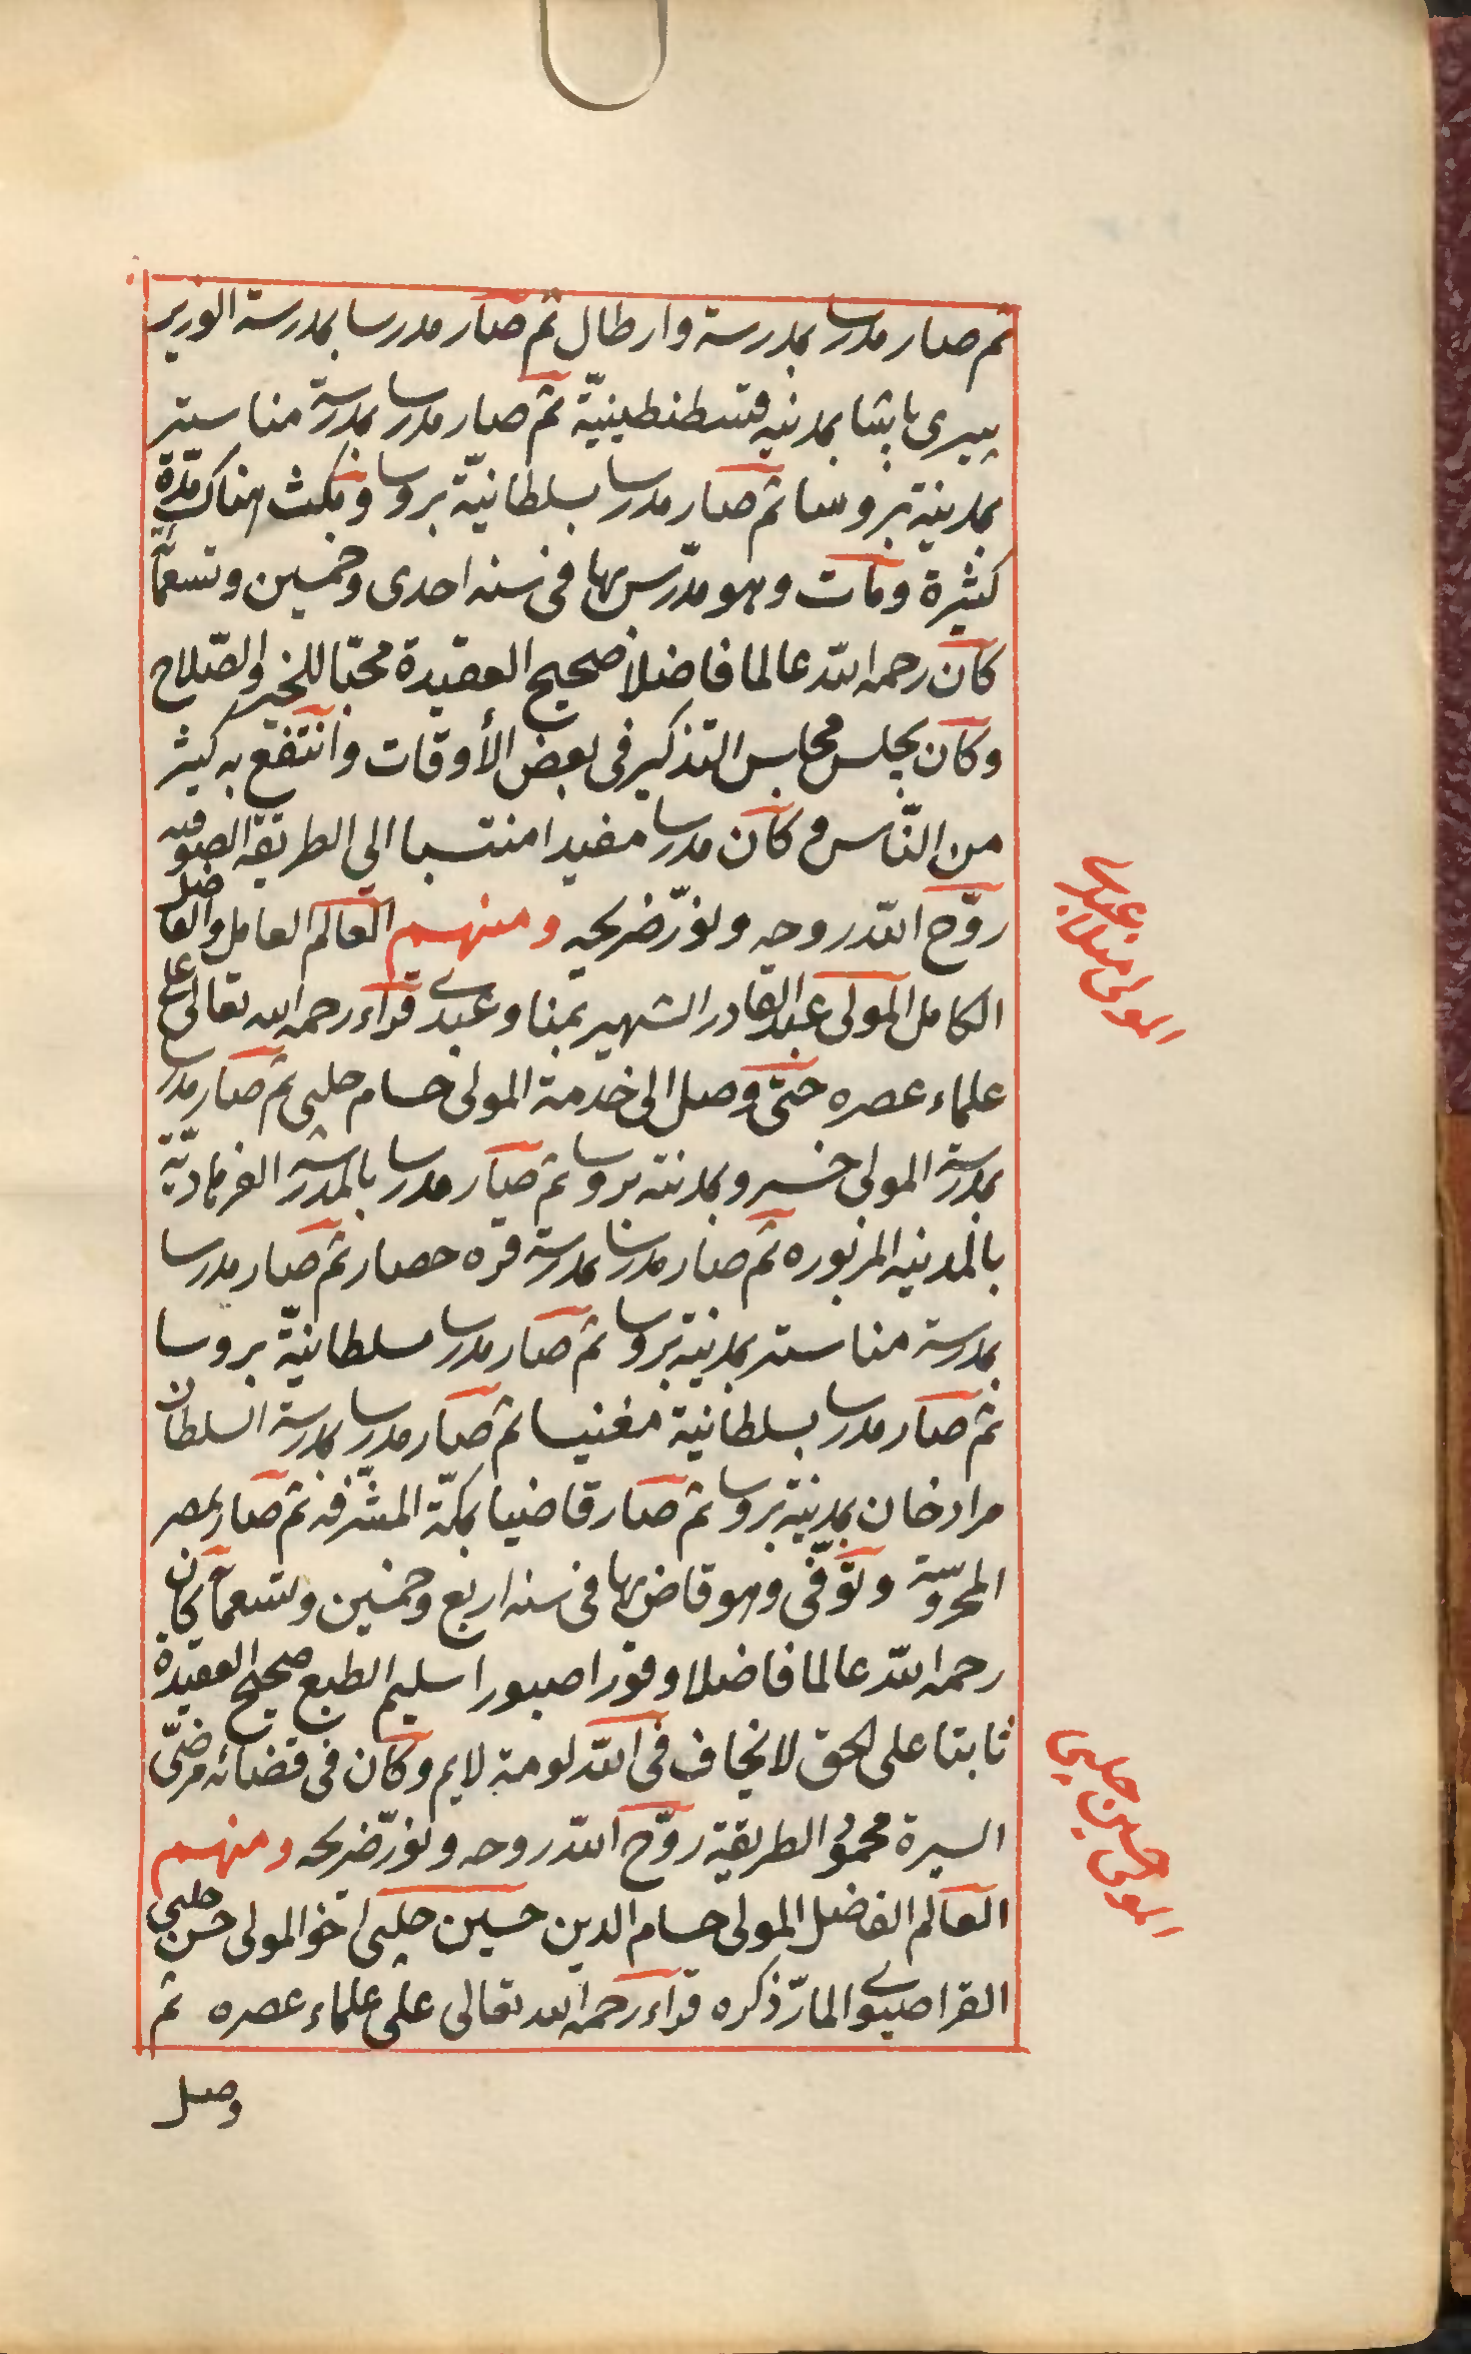 ثم صار مدرسا بمدرسة وارطال ثم صار مدرسا بمدرسة الوزير
پيری پاشا بمدنيه قسطنطينيّة ثم صار مدرسا بمدرسة مناستر
بمدينة بروسا ثم صار مدرسا بسلطانيّة بروسا ومكث هناك مدّة
كثيرة ومات وهو مدرّس بها فى سنه احدى وخمسين وتسعمأئة
كان رحمه الله عالما فاضلا صحيح العقيدة محبّا للخير والصّلاح
وكان يجلس مجالس التذكير فى بعض الأوقات وانتفع به كثير
من النّاس وكان مدرسا مفيدا منتسبا الى الطريقة الصوفيه
روّح الله روحه ونوّر ضريحه ومنهم العالم العامل والفاضل
الكامل المولى عبد القادر الشهير بمناو عبدى قرأ رحمه الله تعالى على
علماء عصره حتى وصل الى خدمة المولى حسام جلبى ثم صار مدرسا
بمدرسة المولى خسرو بمدينة بروسا ثم صار مدرسا بالمدرسة الفرهاديّة
بالمدنيه المزبوره ثم صار مدرسا بمدرسة قره حصار ثم صار مدرسا
بمدرسة مناستر بمدينة بروسا ثم صار مدرسا بسلطانيّة بروسا
ثم صار مدرسا بسلطانية مغنيسا ثم صار مدرسا بمدرسة السلطان
مراد خان بمدينة بروسا ثم صار قاضيا بمكّة المشرّفه ثم صار بمصر
المحروسة وتوفّى وهو قاض بها فى سنه اربع وخمسين وتسعمأئة كان
رحمه الله عالما فاضلا وقورا صبورا سليم الطبع صحيح العقيدة
ثابتا على الحق لا يخاف فى الله لومة لايم وكان فى قضائه مرضىّ
السيرة محمود الطريقة روّح الله روحه ونوّر ضريحه ومنهم
العالم الفاضل المولى حسام الدين حسين جلبى اخو المولى حسن جلبى
القراصيوى المارّ ذكره قرأ رحمه الله تعالى على علماء عصره ثم
وصل
المولى منلا عبدى
المولى حسين جلبى